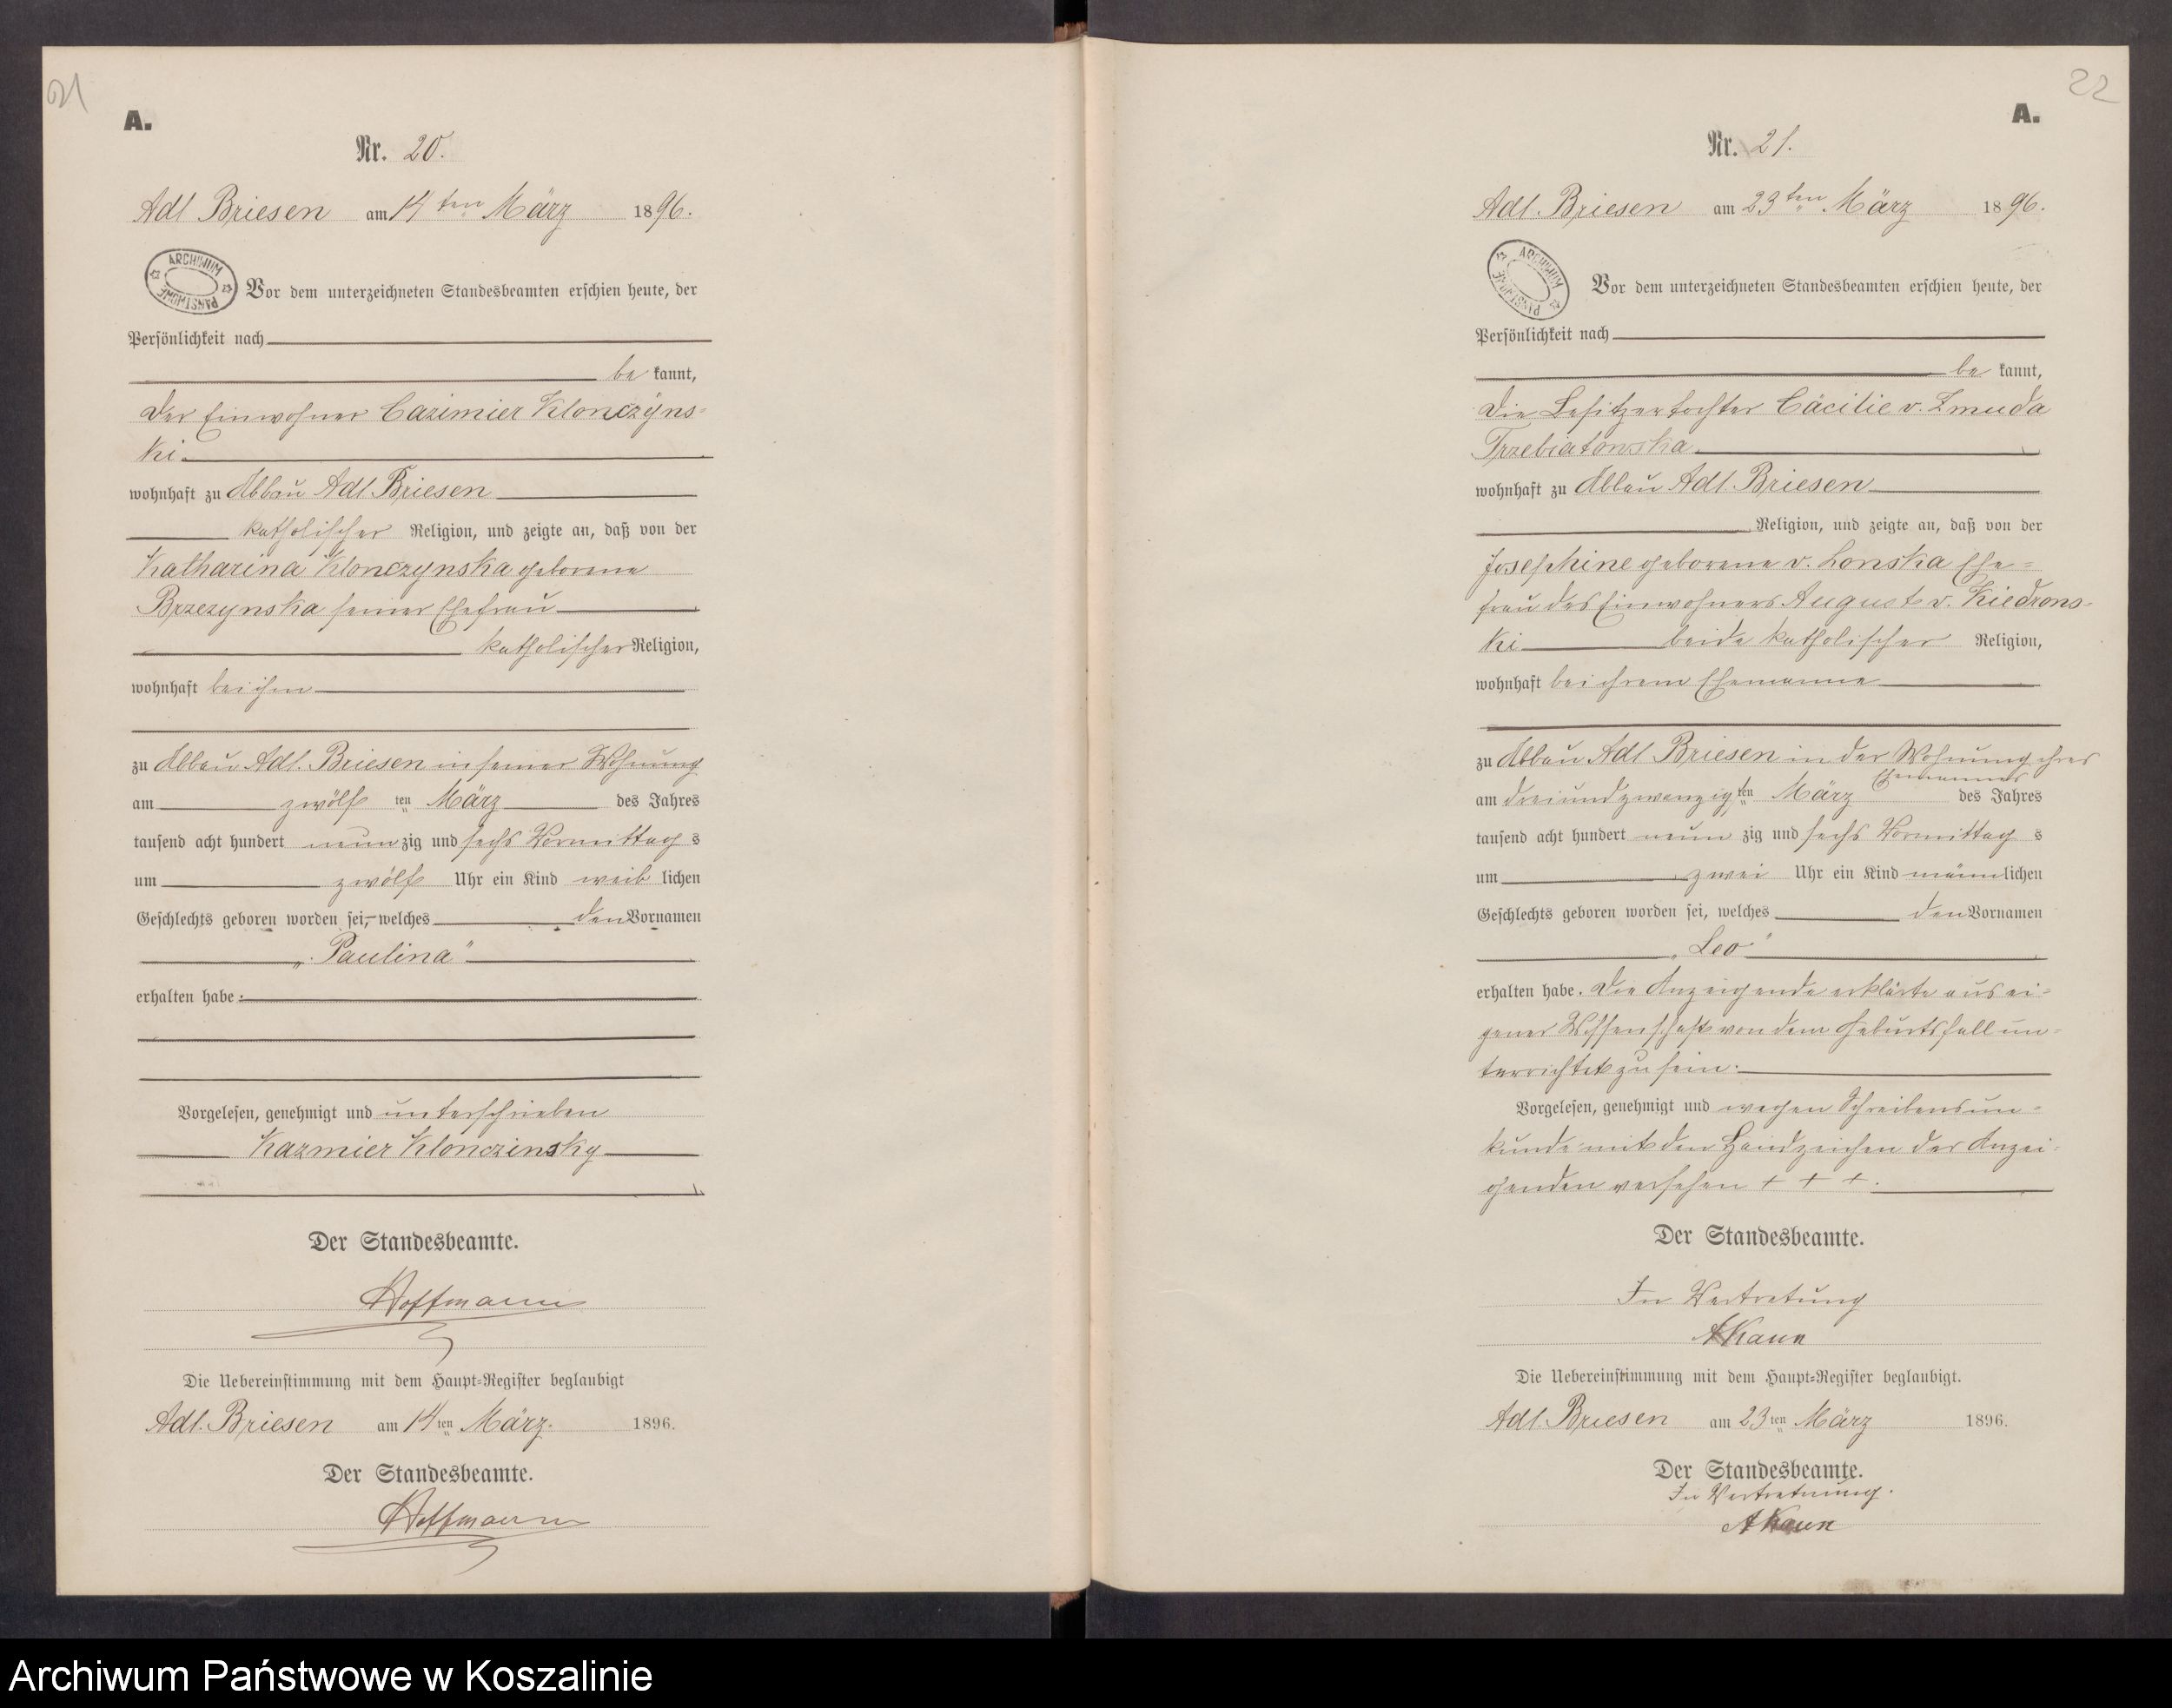 21
A.
Nr. 20.
Adl Briesen am 14ten März 1896.
ARCHIWUM PAŃSTWOWE
Vor dem unterzeichneten Standesbeamten erschien heute, der
Persönlichkeit nach
be kannt,
der Einwohner Casimier Klonczyns-
ki
wohnhaft zu Abbau Adl. Briesen
katholischer Religion, und zeigte an, daß von der
Katharina Klonczynska geborene
Brzezynska seiner Ehefrau
katholischer Religion,
wohnhaft bei ihm
zu Abbau Adl. Briesen in seiner Wohnung
am zwölf ten März des Jahres
tausend acht hundert neun zig und sechs Vormittag s
um zwölf Uhr ein Kind weib lichen
Geschlechts geboren worden sei, welches den Vornamen
„Paulina“
erhalten habe.
Vorgelesen, genehmigt und unterschrieben
Kazmier Klonczinsky
Der Standesbeamte.
Hoffmann
Die Uebereinstimmung mit dem Haupt-Register beglaubigt
Adl. Briesen am 14ten März. 1896.
Der Standesbeamte.
Hoffmann
22
A.
Nr. 21.
Adl. Briesen am 23ten März 1896.
ARCHIWUM PAŃSTWOWE
Vor dem unterzeichneten Standesbeamten erschien heute, der
Persönlichkeit nach
be kannt,
die Besitzertochter Cäcilie v. Zmuda
Trzebiatowska
wohnhaft zu Abbau Adl. Briesen
Religion, und zeigte an, daß von der
Josephine geborene v. Lonska Ehe-
frau des Einwohners August v. Kiedrows-
ki beide katholischer Religion,
wohnhaft bei ihrem Ehemanne
zu Abbau Adl Briesen in der Wohnung ihres
Ehemannes
am dreiundzwanzig ten März des Jahres
tausend acht hundert neun zig und sechs Vormittag s
um zwei Uhr ein Kind männlichen
Geschlechts geboren worden sei, welches den Vornamen
„Leo“
erhalten habe. Die Anzeigende erklärte aus ei-
gener Wissenschaft von dem Geburtsfall un-
terrichtet zu sein.
Vorgelesen, genehmigt und wegen Schreibensun-
kunde mit den Handzeichen der Anzei-
genden versehen + + +.
Der Standesbeamte.
In Vertretung
A Kaun
Die Uebereinstimmung mit dem Haupt-Register beglaubigt.
Adl. Briesen am 23ten März 1896.
Der Standesbeamte.
In Vertretung.
A Kaun
Archiwum Państwowe w Koszalinie